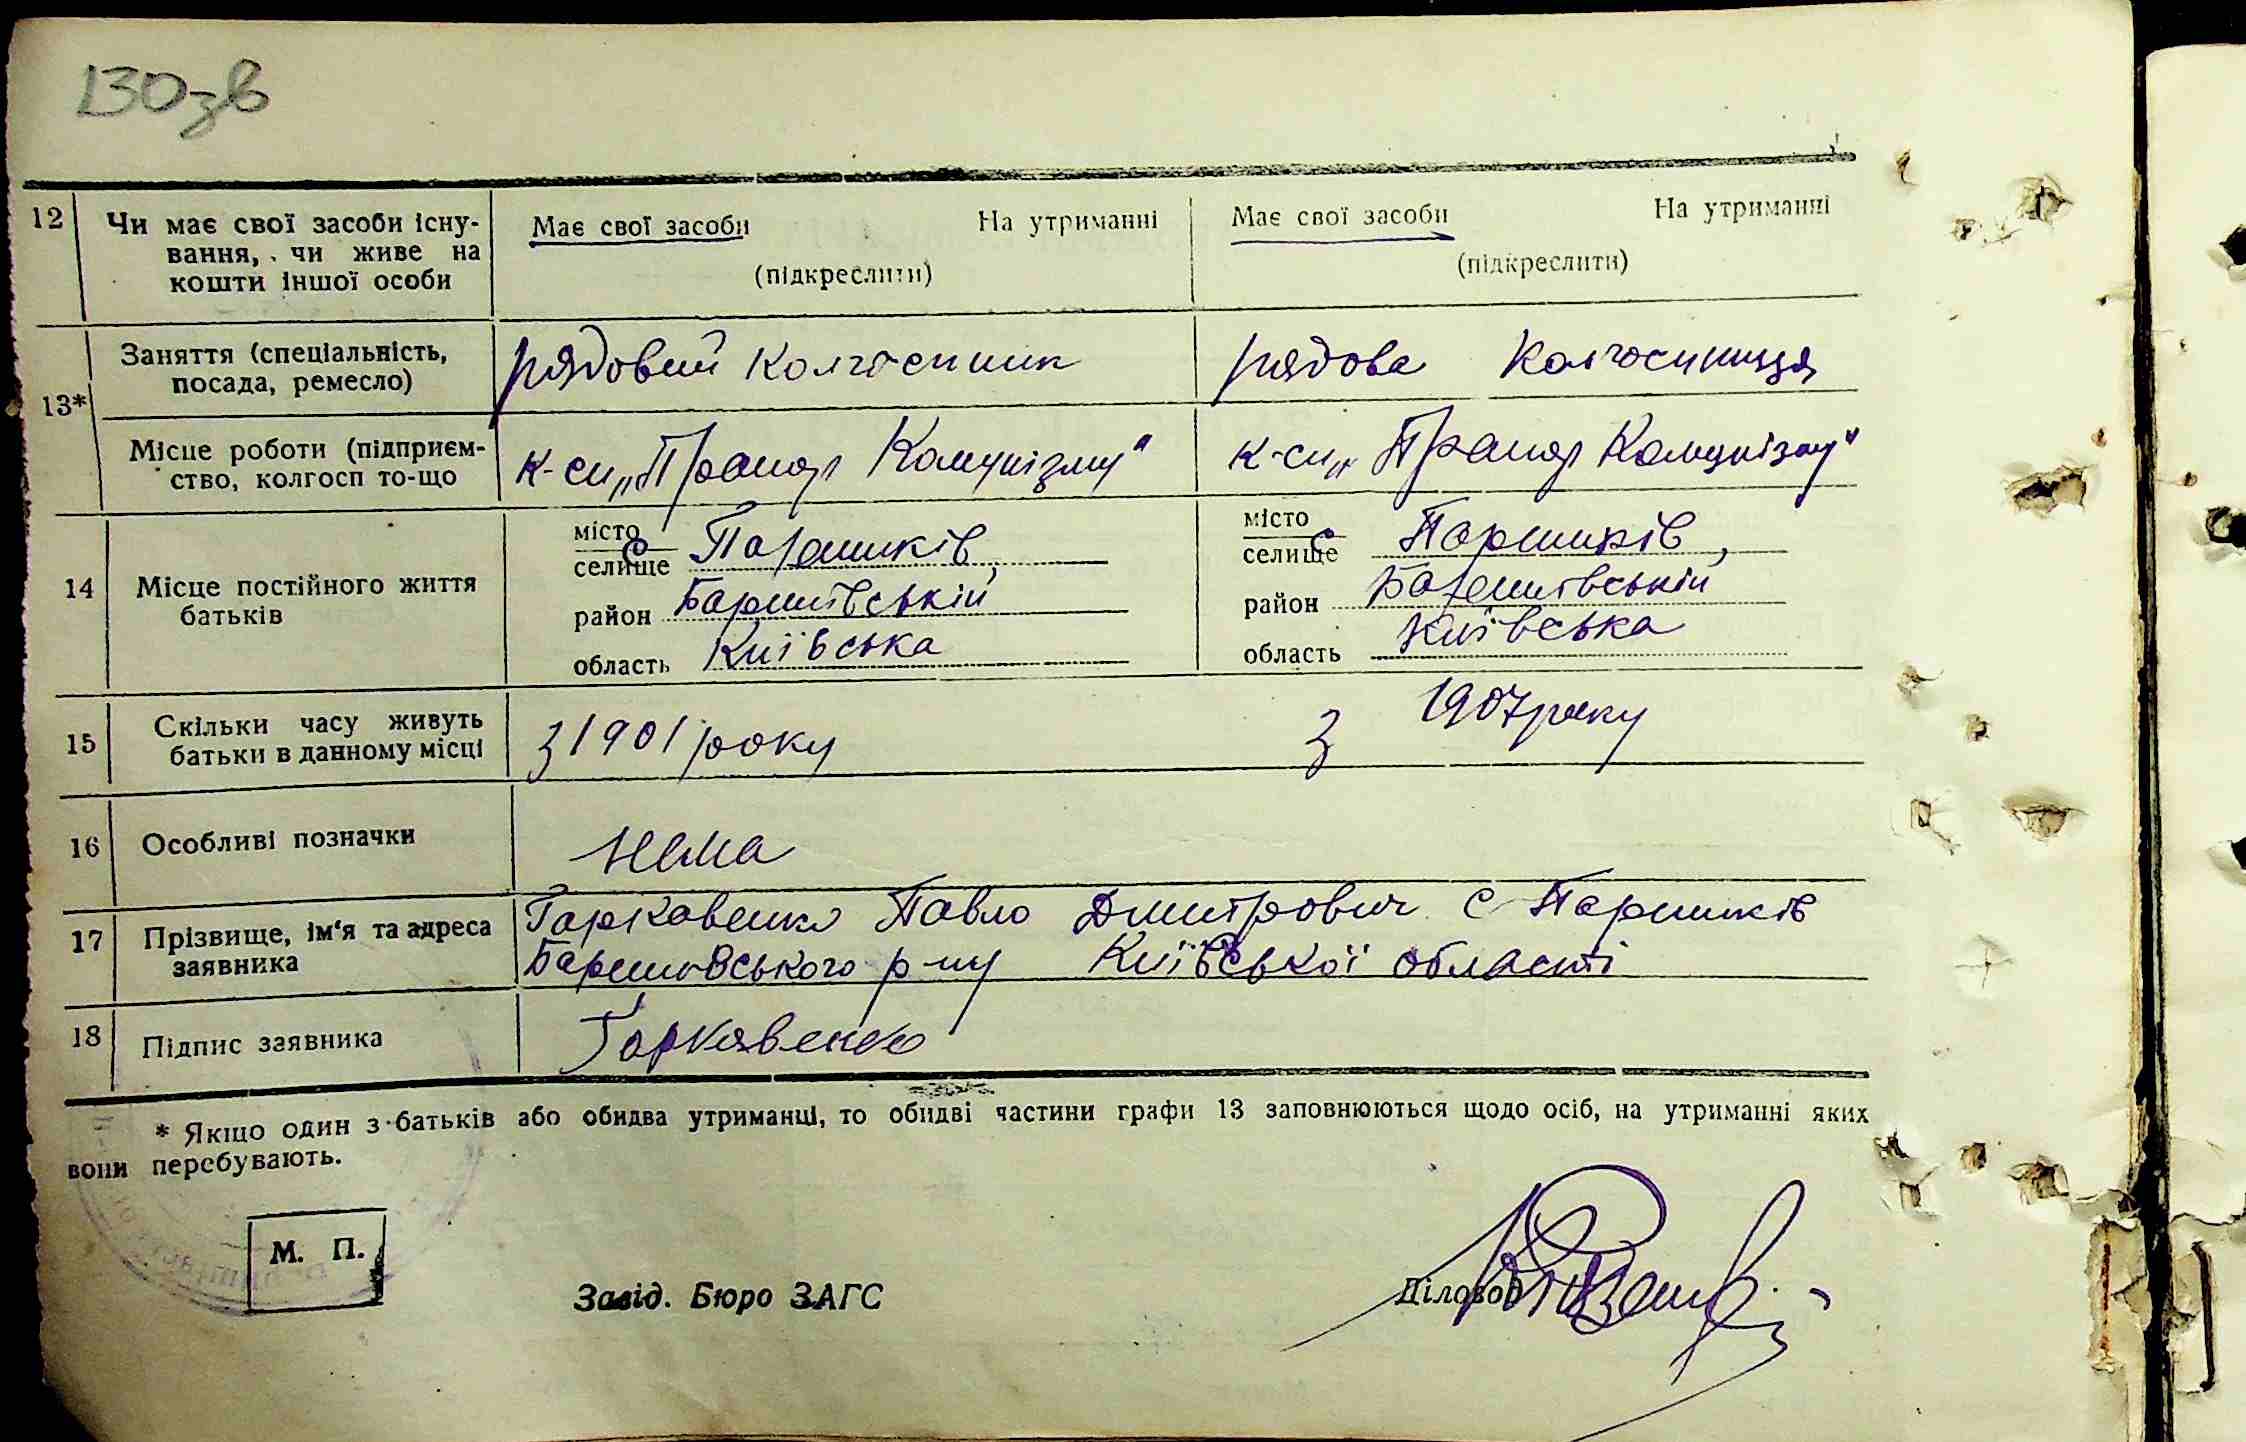 130зв
12 Чи має свої засоби існу- Має свої засоби На утриманні Має свої засоби На утриманні
вання, чи живе на
кошти іншої особи (підкреслити) (підкреслити)
13* Заняття (спеціальність, рядовий колгоспник рядова колгоспниця
посада, ремесло)
Місце роботи (підприєм- к-сп „Прапор Комунізму“ к-сп „Прапор Комунізму“
ство, колгосп то-що
14 Місце постійного життя батьків
місто
селище с Паришків,
район Баришівський
область Київська
місто
селище с Паришків,
район Баришівський
область Київська
15 Скільки часу живуть з 1901 року з 1907 року
батьки в данному місці
16 Особливі позначки нема
17 Прізвище, ім'я та адреса Гаркавенко Павло Дмитрович с Паришків
заявника Баришівського р-ну Київської області
18 Підпис заявника Гаркавенко
* Якщо один з батьків або обидва утриманці, то обидві частини графи 13 заповнюються щодо осіб, на утриманні яких
вони перебувають.
М. П.
Завід. Бюро ЗАГС Діловод